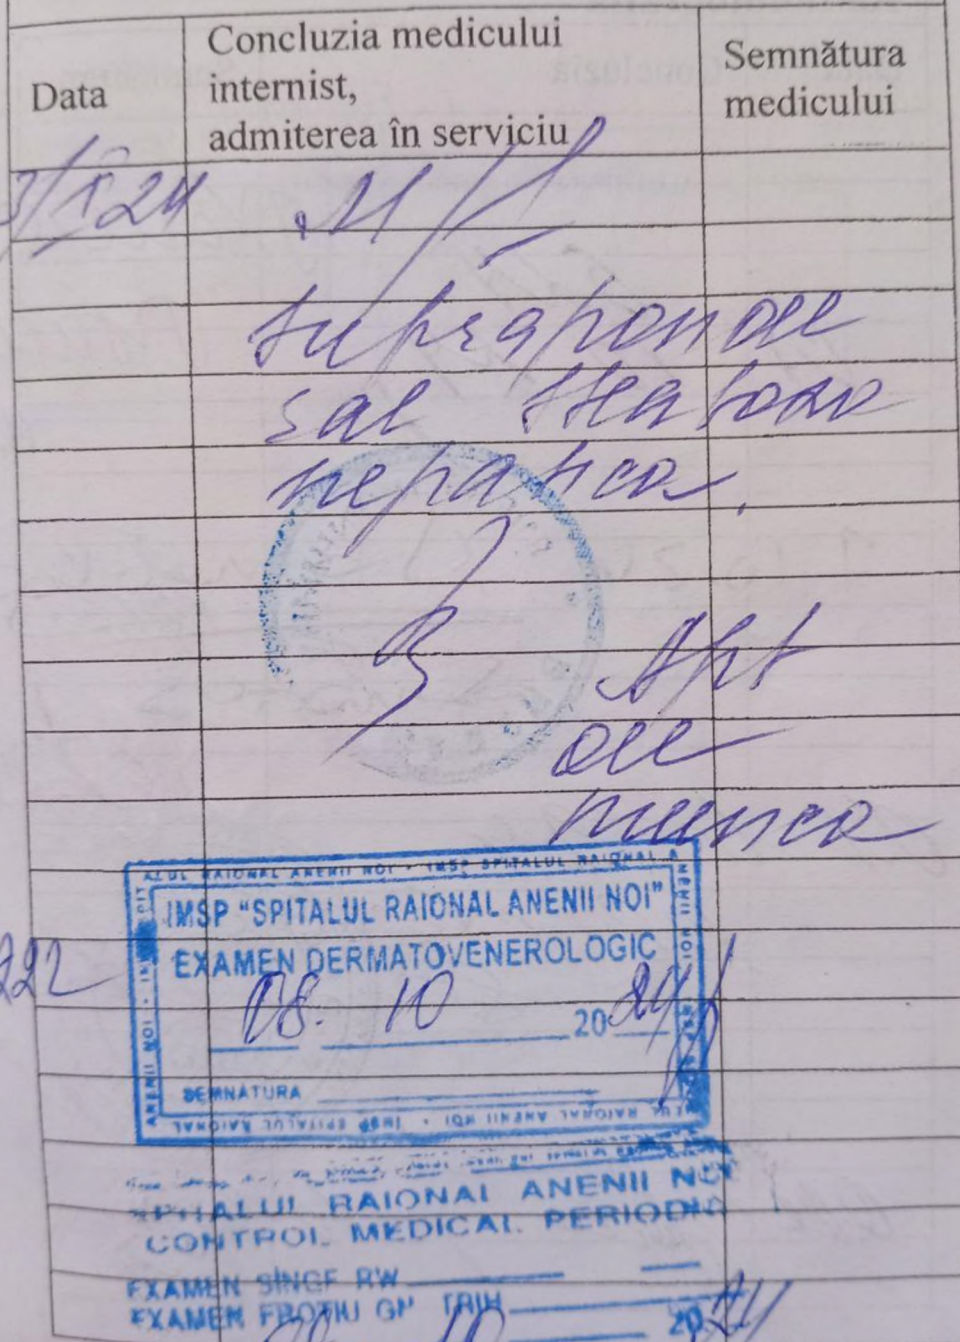 Data
Concluzia medicului
internist,
admiterea în serviciu
Semnătura
medicului
suprapondee
sal steatoza
hepatica.
Apt
de
munca
IMSP "SPITALUL RAIONAL ANENII NOI"
EXAMEN DERMATOVENEROLOGIC
08. 10 2024
SEMNATURA
SPITALUL RAIONAL ANENII NOI
CONTROL MEDICAL PERIODIC
EXAMEN SÎNGE RW
EXAMEN FROTIU GN TRIH
10 2024